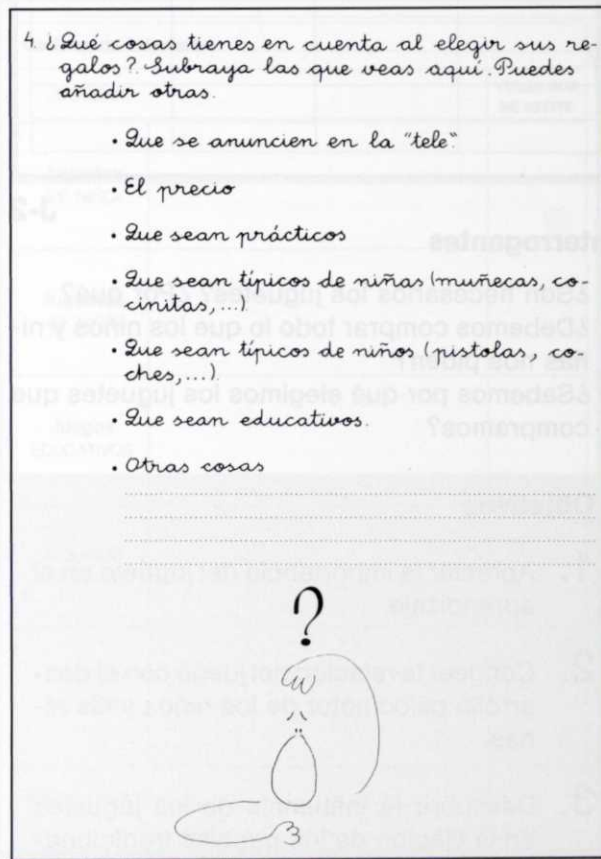 4. ¿Qué cosas tienes en cuenta al elegir sus re-
galos?. Subraya las que veas aquí. Puedes
añadir otras.
• Que se anuncien en la "tele"
• El precio
• Que sean prácticos
• Que sean típicos de niñas (muñecas, co-
cinitas,...)
• Que sean típicos de niños (pistolas, co-
ches,...)
• Que sean educativos.
• Otras cosas
?